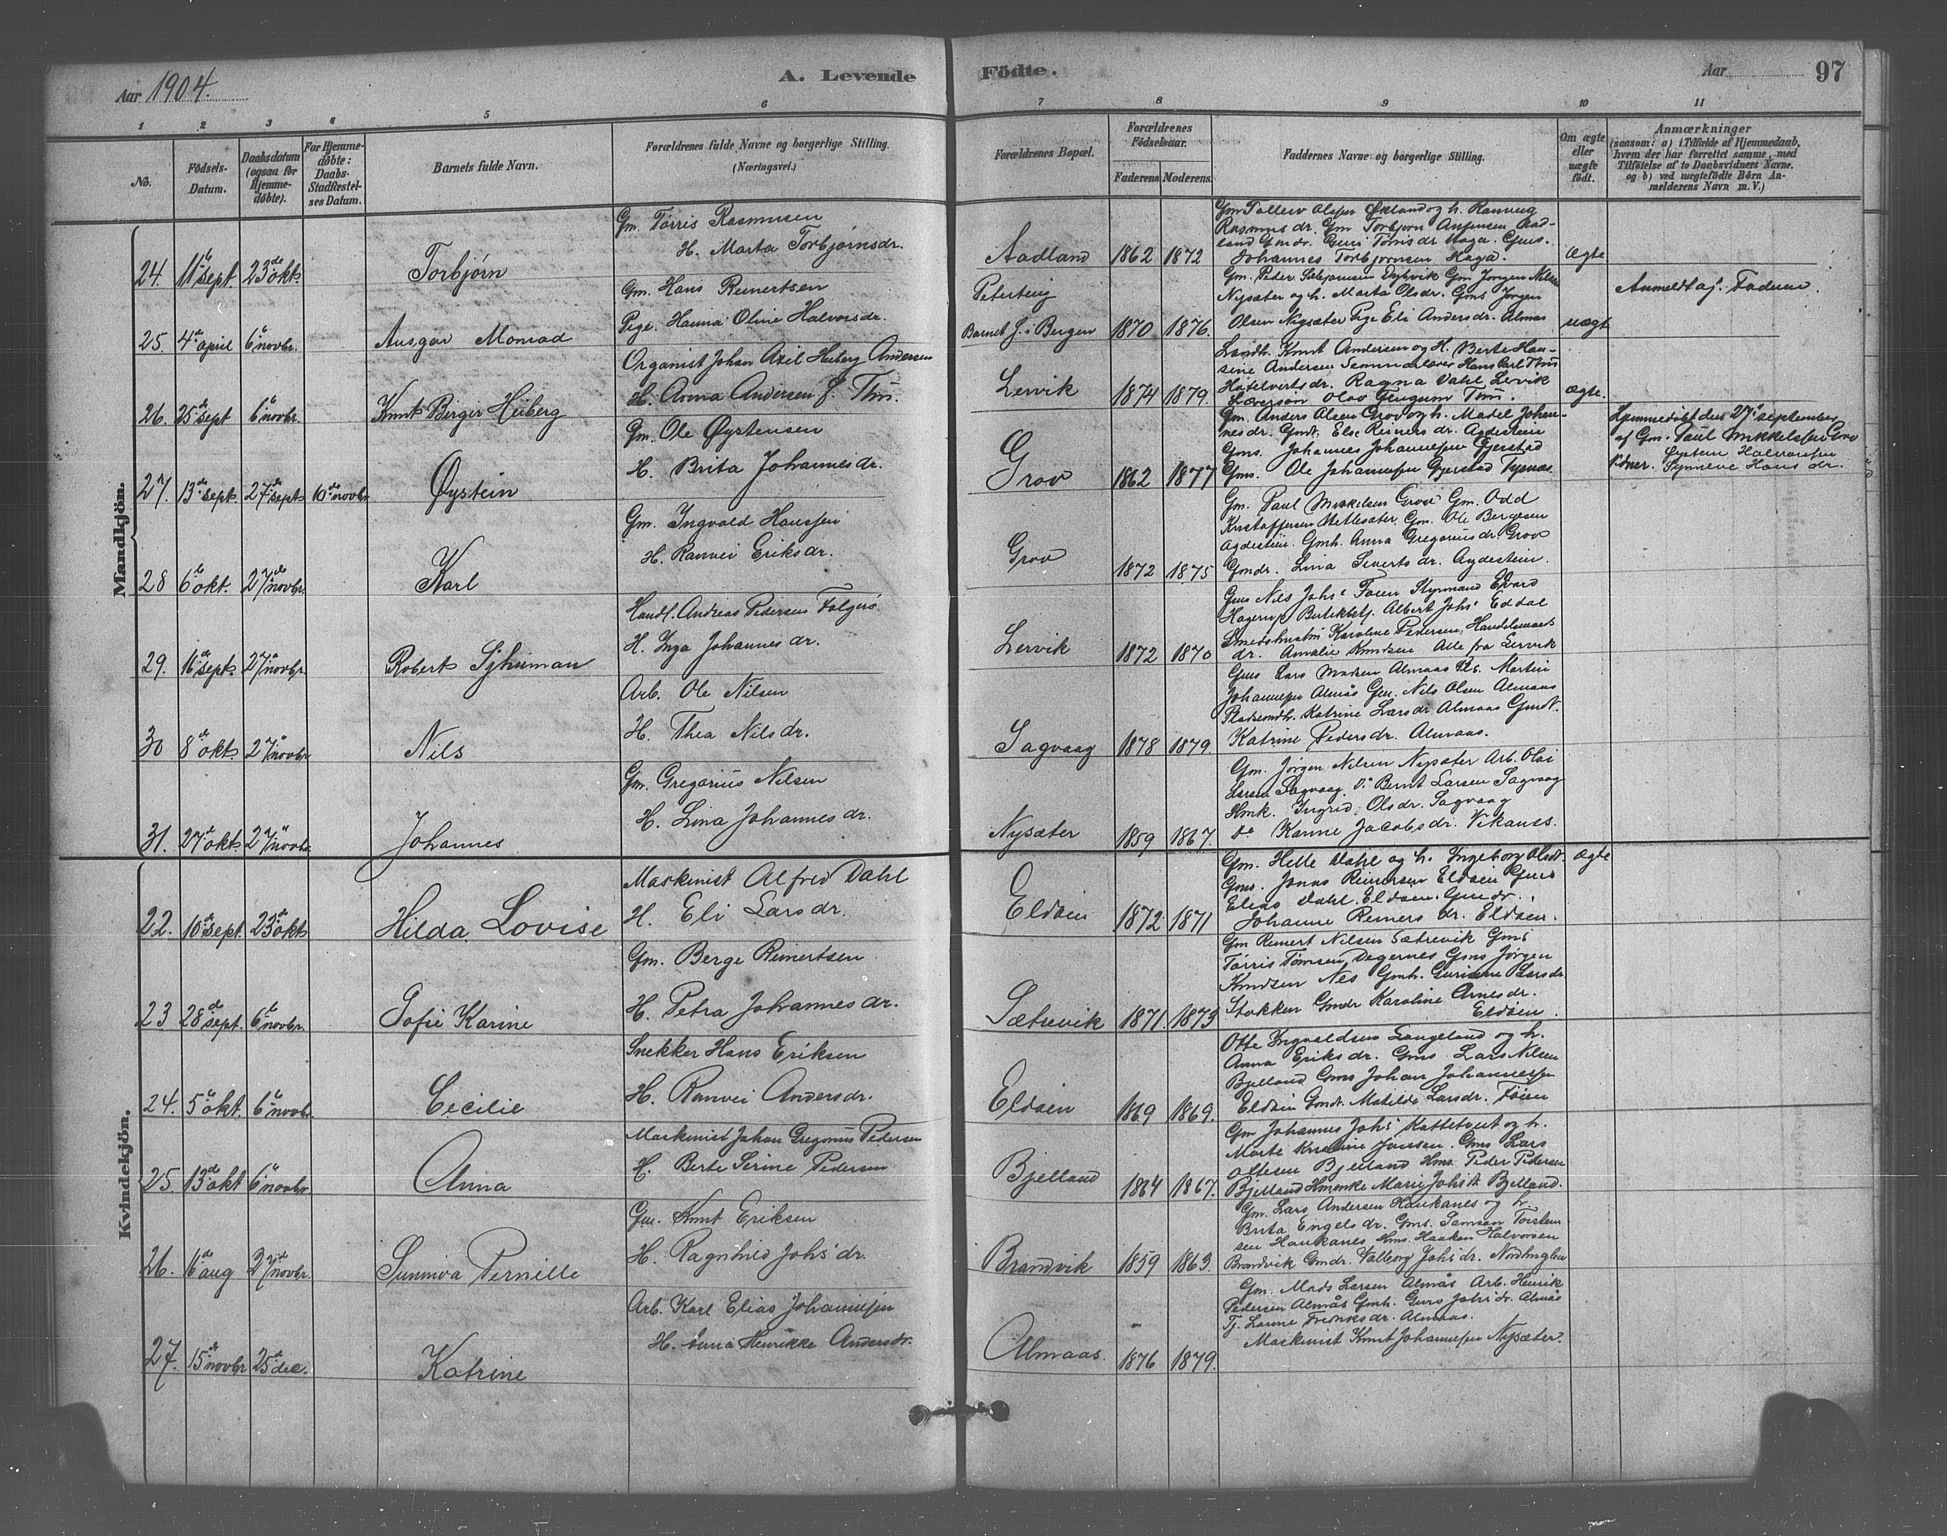 Aar 1904.
A. Levende Födte.
Aar
97
1 2 3 4 5 6 7 8 9 10 11
No.
Födsels-Datum.
Daabsdatum (ogsaa for Hjemmedøbte).
For Hjemmedøbte: Daabs-Stadfestelses Datum.
Barnets fulde Navn.
Forældrenes fulde Navne og borgerlige Stilling.
(Næringsvei.)
Forældrenes Bopæl.
Forældrenes Fødselsaar.
Faderens. Moderens.
Faddernes Navne og borgerlige Stilling.
Om ægte eller uægte født.
Anmærkninger
(saasom: a) i Tilfælde af Hjemmedaab, hvem der har forrettet samme, med Tilføielse af to Daabsvidners Navne. og b) ved uægtefødte Børn Anmelderens Navn m. V.)
Mandkjön.
24. 11te sept. 23de okt. Torbjørn
Gm. Tørris Rasmusen
H. Marta Torbjørnsdr.
Aadland 1862 1872
Rasmusdr. Gm Torbjørn
Johannes Torbjørnsen Haga.
Ægte
25. 4de april 6te novbr. Ansgar Monrad
Gm. Hans Reinertsen
Pige. Hanna Oline Halvorsdr.
Barnet f. i Bergen 1870 1876.
Nysæter og h. Marta Olsdr. Gms Jørgen
Olsen Nysæter Pige Eli Andersdr. Almås
uægte
Anmeldt af Faderen.
26. 25de sept 6te novbr. Knut Birger Heiberg
Organist Johan Axel Heiberg Andersen
H. Anna Andersen f. Thm.
Lervik 1874 1879.
Knut Andersen og H. Berte Han-
sine Andersen
Ragna Dahl Lervik
ægte
27. 13de sept. 27de sept. 10de novbr. Øystein
Gm. Ole Øystensen
H. Brita Johannesdr.
Grov 1862 1877
Gm. Anders Olsen Grov og h. Madel Johan-
nesdr. Gmdt. Else Reinersdr. Agdestein
Gms. Johannes Johannessen Gjerstad
Gms. Ole Johannessen Gjerstad Tysnæs.
Hjemmedøbt den 27de september
af Gm. Paul Mikkelsen Grov
Vidner. Øystein Halvorsen
Synneve Hansdr.
28 6te okt. 27de novbr. Karl
Gm. Ingvald Hanssen
H. Ranvei Eriksdr.
Grov 1872 1875
Gm. Paul Mikkelsen Grov Gm. Odd
Kristoffersen Vetlesæter, Gm. Ole Bergesen
Agdestein. Gmh. Anna Gregoriusdr. Grov
Gmdr. Lina Sivertsdr. Agdestein.
29. 16de sept. 27de novbr. Robert Sjhuman
Handl. Andreas Pedersen Falgerø
H. Inga Johannesdr.
Lervik 1872 1870
Gms Nils Johs. Føien Styrmand Edvard
Hagerup Albert Johs. Eddal
Karoline Pedersen, Handelsmands
dr. Amalie Knudsen Alle fra Lervik
30 8de okt. 27de novbr. Nils
Arb. Ole Nilsen
H. Thea Nilsdr.
Sagvaag 1878 1879.
Gms Lars Madsen Almaas Martin
Johannessen Almås Gm. Nils Olsen Almaas
Katrine Larsdr Almaas Gmdt.
Katrine Pedersdr. Almaas.
31. 27de okt. 27de novbr. Johannes
Gm. Gregorius Nilsen
H. Lina Johannesdr.
Nysæter 1859 1867.
Gm. Jørgen Nilsen Nysæter Arb. Olai
Larsen Sagvaag. Do Bernt Larsen Sagvaag
Hmk. Ingrid Olsdr. Sagvaag
do Karine Jacobsdr. Vikanes.
Kvindekjön.
22. 10de sept. 23de okt. Hilda Lovise
Maskinist Alfred Dahl
H. Eli Larsdr.
Eldøen 1872 1871
Gm. Helle Dahl og h. Ingeborg Olsdt.
Gms. Jonas Reinersen Eldøen Gms
Elias Dahl. Eldøen. Gmdr.
Johanne Reinersdr. Eldøen.
ægte
23 28de sept. 6te novbr. Sofie Karine
Gm. Berge Reinertsen
H. Petra Johannesdr.
Sætrevik 1871. 1873
Gm Reinert Nilsen Sætrevik Gms
Tørris Tomsen, Degernes Gms Jørgen
Knudsen Nes Gmh. Gurine Larsdr
Stokken Gmdr Karoline Arnesdr.
Eldøen.
24. 5te okt. 6te novbr. Cecilie
Snekker Hans Eriksen
H. Ranvei Andersdr.
Eldøen 1869 1869.
Otte Ingvaldsen Langeland og h.
Anna Eriksdr. Gms. Lars Nilsen
Bjelland Gms Johan Johannessen
Eldøen Gmdt. Matilde Larsdr. Føien
25. 13de okt 6te novbr. Anna
Maskinist Johan Gregorius Pedersen
H. Berte Serine Pedersen
Bjelland 1864 1867.
Gm Johannes Johs. Kattetveit og h.
Marte Kristine Jonsen. Gms Lars
Ottesen Bjelland Hms. Peder Pedersen
Bjelland Hmenke Marie Johsdt Bjelland.
26. 6te aug 27de novbr. Sunniva Pernille
Gm. Knut Eriksen
H. Ragnhild Johsdr.
Brandvik 1859 1863.
Gm. Lars Andersen Haukanes og h
Brita Engelsdr. Gms. Samson Torstein
sen Haukanes Hms. Haaken Halvorsen
Brandvik Gmdr. Valborg Johsdr.
27. 15de novbr 25de dec. Katrine
Arb. Karl Elias Johannessen
H. Anna Henrikke Andersdr.
Almaas. 1876 1879.
Gm. Mads Larsen Almås Arb. Henrik
Pedersen Almås Gmh. Guro Johsdr. Almås
Tj. Larine Fredriksdr. Almaas.
Maskinist Knut Johannessen Nysæter.